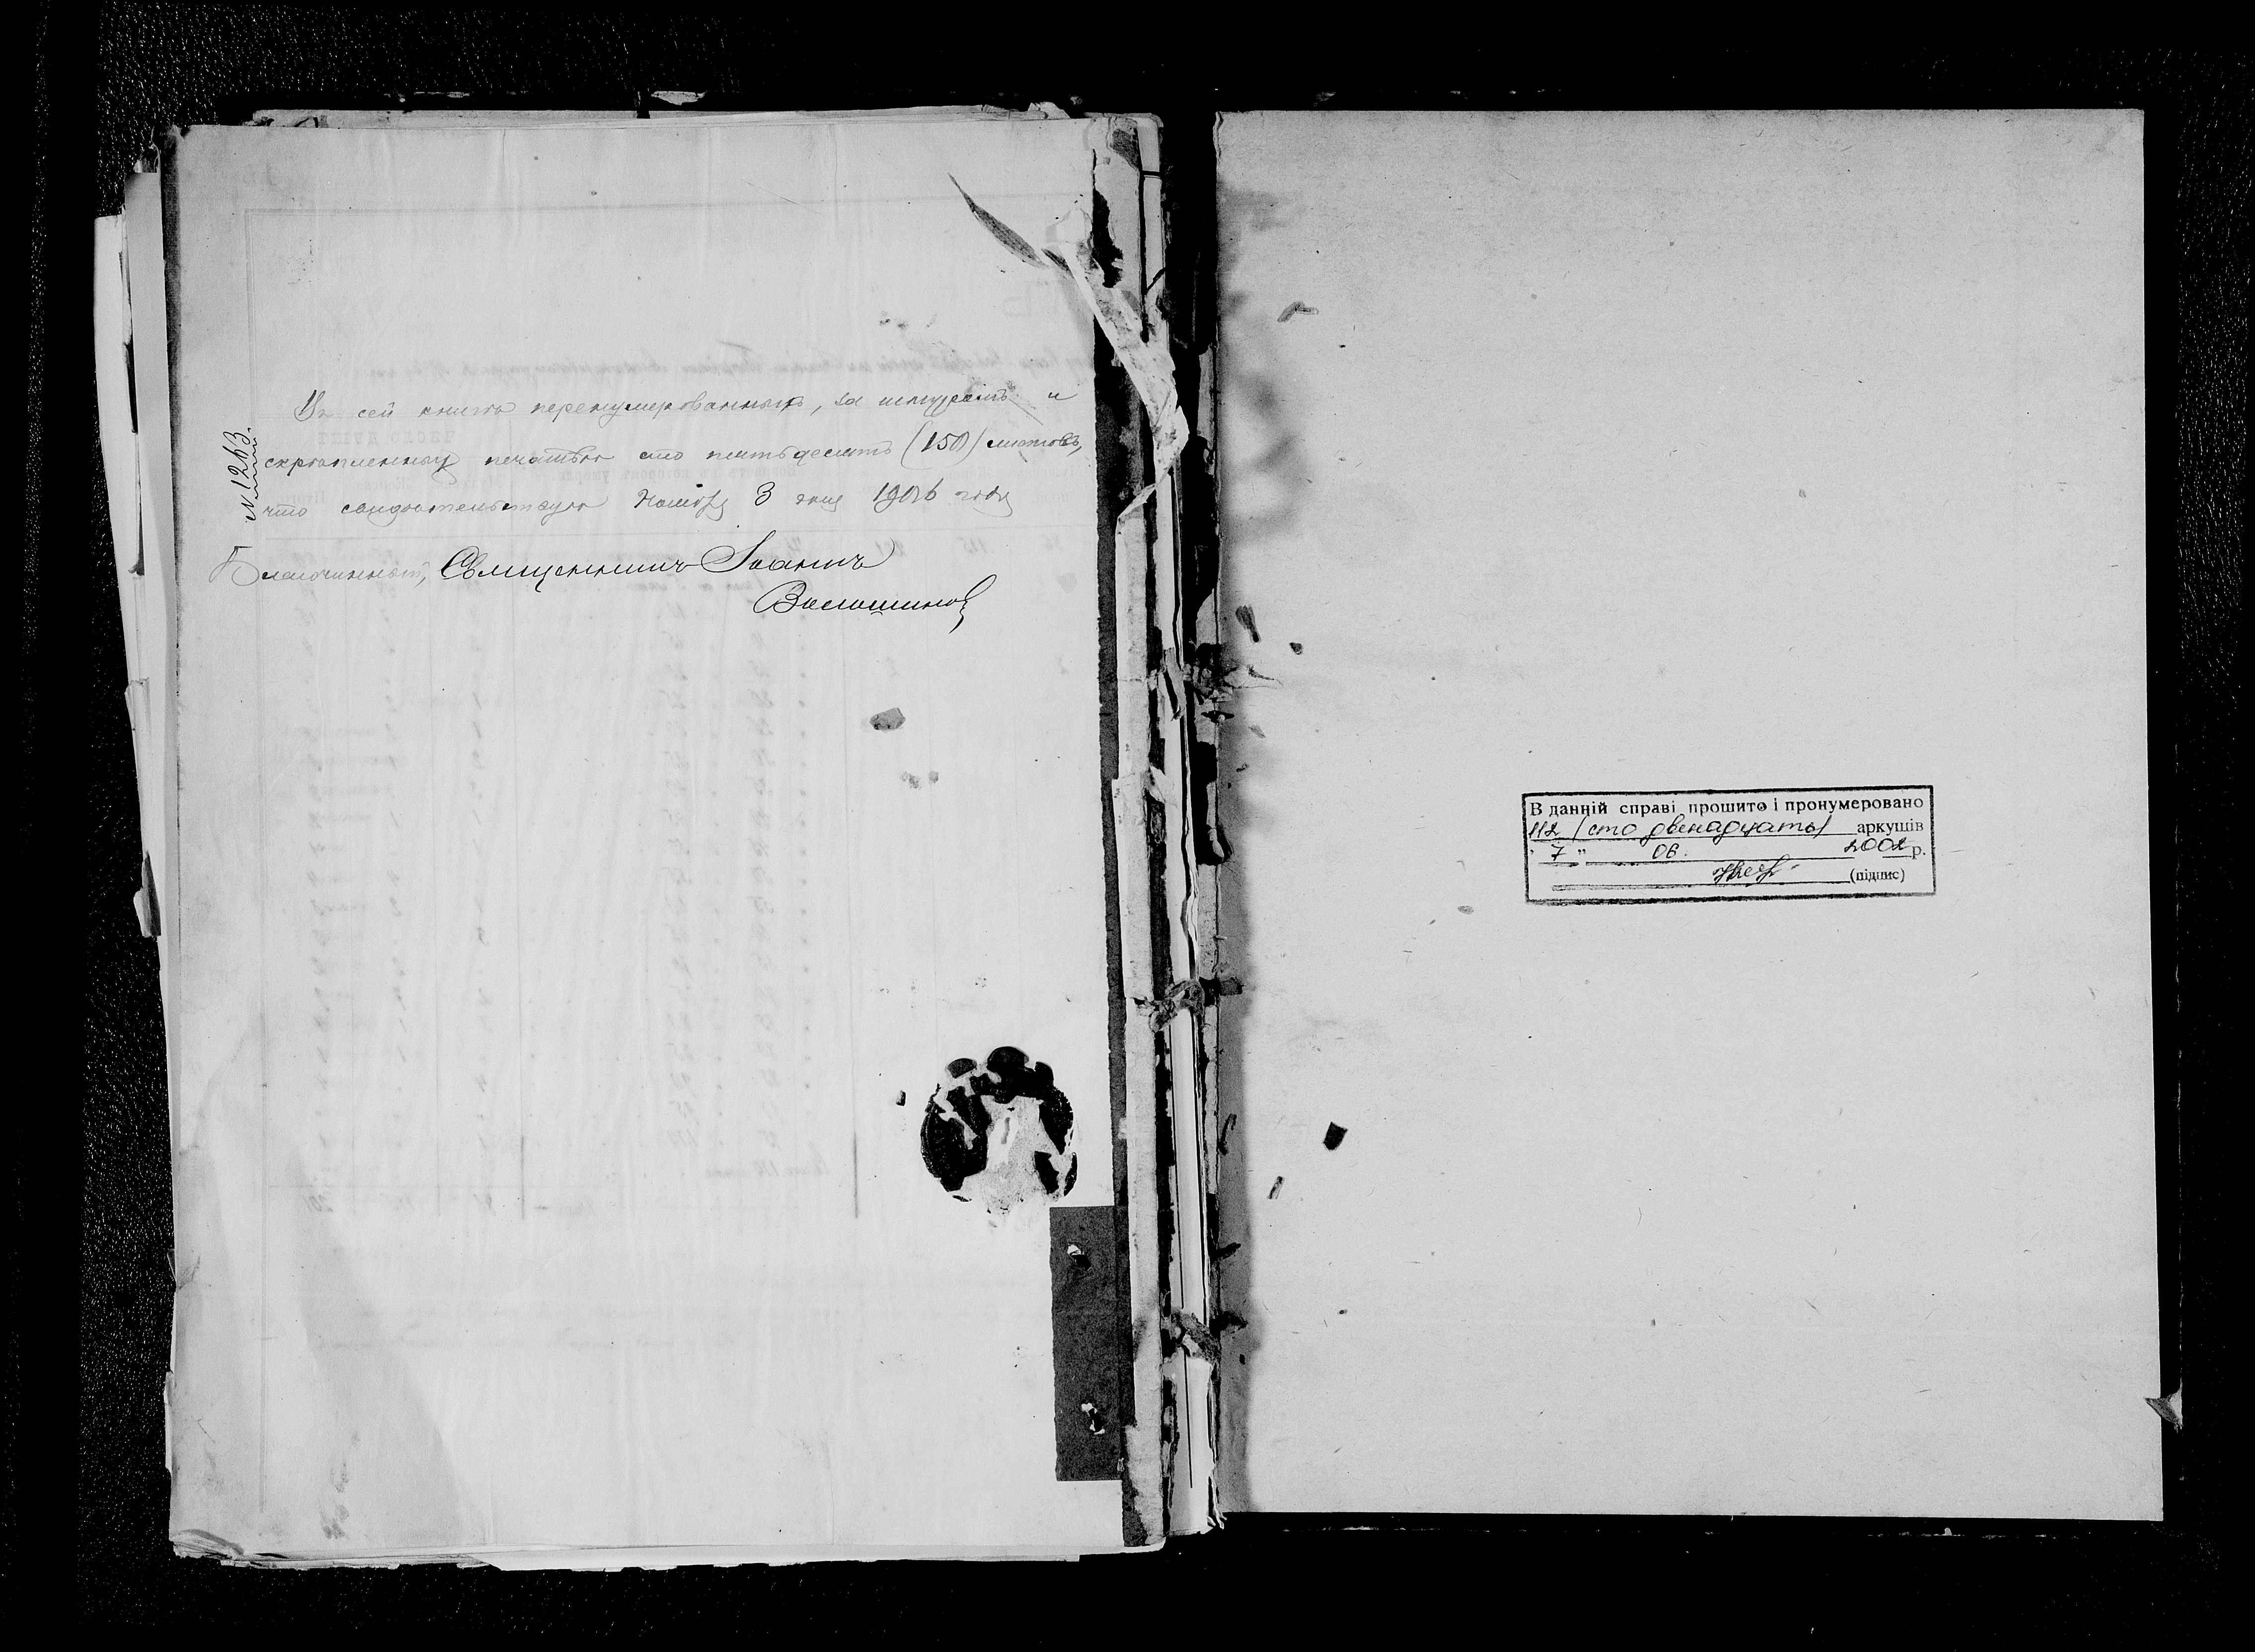 Въ сей книгѣ перенумерованныхъ, за шнуромъ и
скрѣпленныхъ печатью сто пятьдесятъ (150) листовъ,
что свидѣтельствую Ноября 3 дня 1906 года
№ 1263.
Благочинный, Священникъ Іоаннъ
Волошиновъ
В данній справі прошито і пронумеровано
112 (сто двенадцать) аркушів
"7" 06. 2002 р.
(підпис)